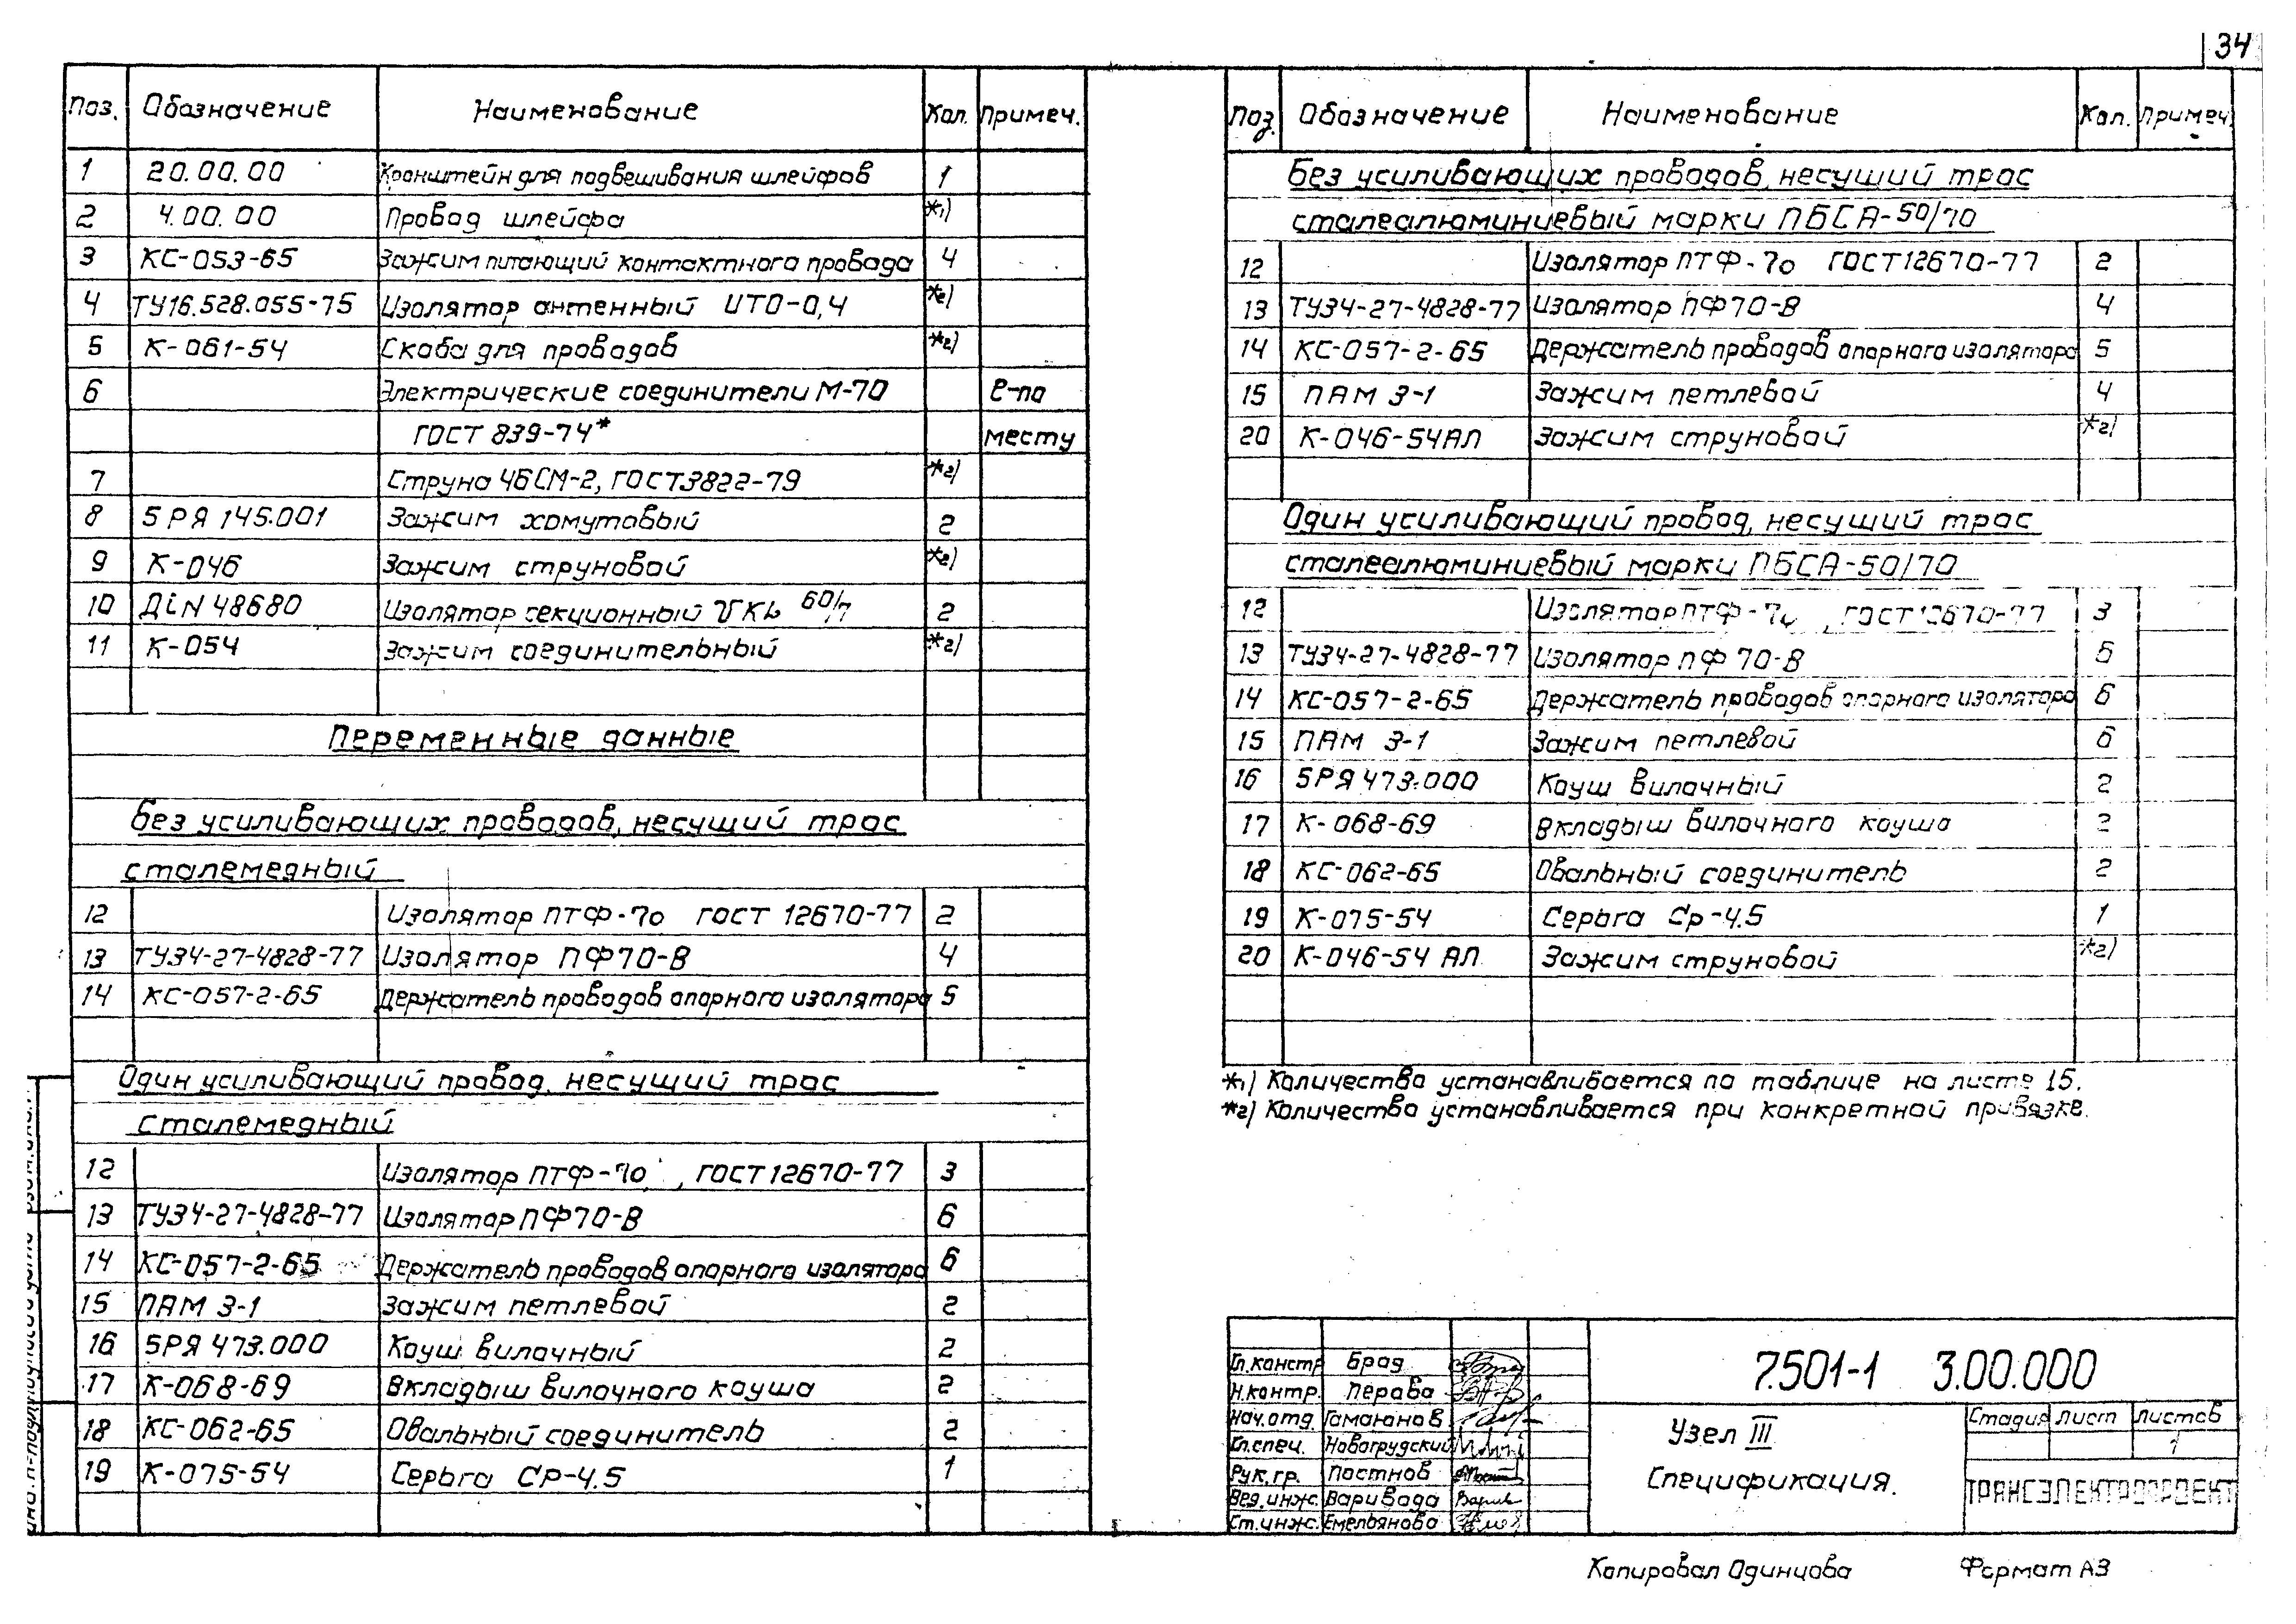 34
Поз. Обозначение Наименование Кол. Примеч.
1 20.00.00 Кронштейн для подвешивания шлейфов 1
2 4.00.00 Провод шлейфа *1)
3 КС-053-65 Зажим питающий контактного провода 4
4 ТУ16.528.055-75 Изолятор антенный ИТО-0,4 *2)
5 К-061-54 Скоба для проводов *2)
6 Электрические соединители М-70 е-по
ГОСТ 839-74* месту
7 Струна 4БСМ-2, ГОСТ3822-79 *2)
8 5РЯ 145.001 Зажим хомутовый 2
9 К-046 Зажим струновой *2)
10 ДiN 48680 Изолятор секционный 60/7 2
11 К-054 Зажим соединительный *2)
Переменные данные
Без усиливающих проводов, несущий трос
сталемедный
12 Изолятор ПТФ-70 ГОСТ 12670-77 2
13 ТУ34-27-4828-77 Изолятор ПФ70-В 4
14 КС-057-2-65 Держатель проводов опорного изолятора 5
Один усиливающий провод, несущий трос
сталемедный
12 Изолятор ПТФ-70, ГОСТ 12670-77 3
13 ТУ34-27-4828-77 Изолятор ПФ70-В 6
14 КС-057-2-65 Держатель проводов опорного изолятора 6
15 ПАМ 3-1 Зажим петлевой 2
16 5РЯ 473.000 Коуш вилочный 2
17 К-068-69 Вкладыш вилочного коуша 2
18 КС-062-65 Овальный соединитель 2
19 К-075-54 Серьга СР-4.5 1
Поз. Обозначение Наименование Кол. Примеч.
Без усиливающих проводов, несущий трос
сталеалюминиевый марки ПБСА-50/70
12 Изолятор ПТФ-70 ГОСТ12670-77 2
13 ТУ34-27-4828-77 Изолятор ПФ70-В 4
14 КС-057-2-65 Держатель проводов опорного изолятора 5
15 ПАМ 3-1 Зажим петлевой 4
20 К-046-54АЛ Зажим струновой *2)
Один усиливающий провод, несущий трос
сталеалюминиевый марки ПБСА-50/70
12 Изолятор ПТФ-70, ГОСТ 12670-77 3
13 ТУ34-27-4828-77 Изолятор ПФ 70-В 6
14 КС-057-2-65 Держатель проводов опорного изолятора 6
15 ПАМ 3-1 Зажим петлевой 6
16 5РЯ 473.000 Коуш вилочный 2
17 К-068-69 Вкладыш вилочного коуша 2
18 КС-062-65 Овальный соединитель 2
19 К-075-54 Серьга Ср-4.5 1
20 К-046-54 АЛ Зажим струновой *2)
*1) Количество устанавливается по таблице на листе 15.
*2) Количество устанавливается при конкретной привязке.
Гл.констр Брод
Н.контр. Перова
Нач.отд. Гамаюнов
Гл.спец. Новогрудский
Рук.гр. Постнов
Вед.инж. Варивода
Ст.инж. Емельянова
7.501-1 3.00.000
Узел III
Спецификация.
Стадия Лист Листов
1
ТРАНСЭЛЕКТРОПРОЕКТ
Копировал Одинцова Формат А3